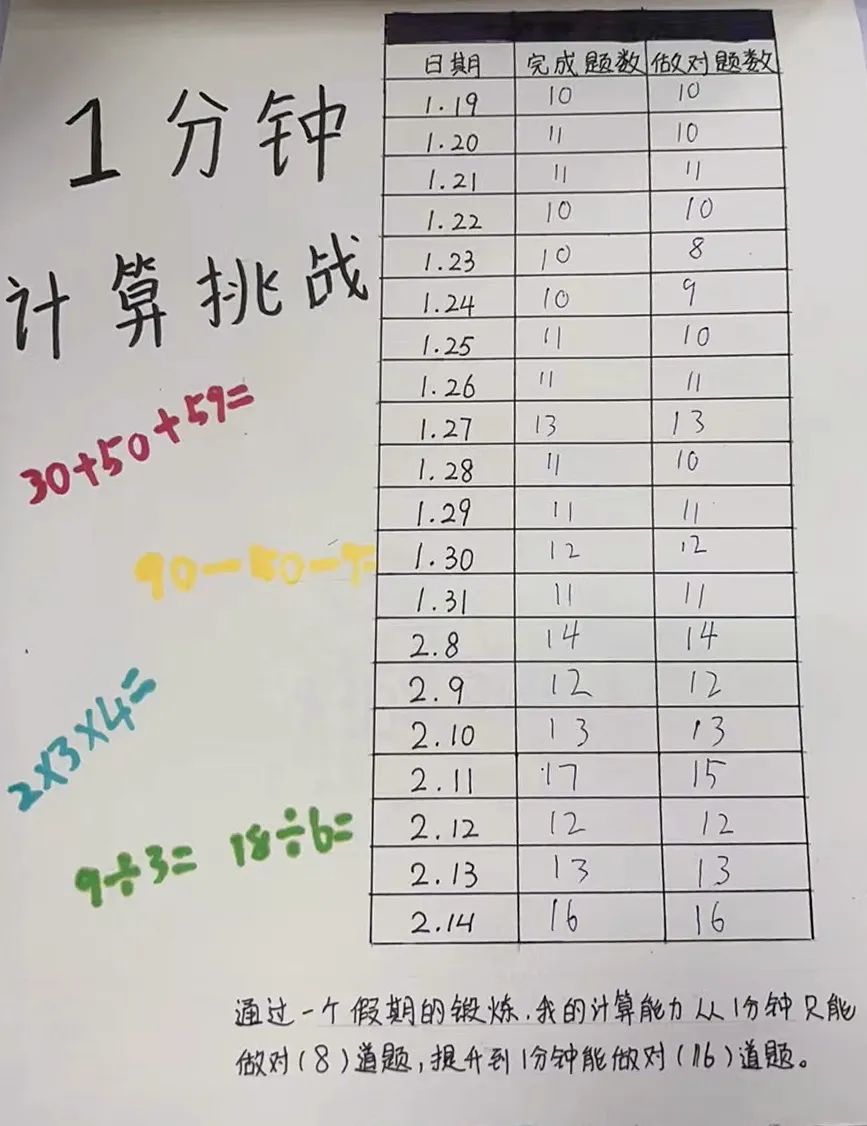 1分钟
计算挑战
30+50+59=
90-50-
2×3×4=
9÷3= 18÷6=
日期 完成题数 做对题数
1.19 10 10
1.20 11 10
1.21 11 11
1.22 10 10
1.23 10 8
1.24 10 9
1.25 11 10
1.26 11 11
1.27 13 13
1.28 11 10
1.29 11 11
1.30 12 12
1.31 11 11
2.8 14 14
2.9 12 12
2.10 13 13
2.11 17 15
2.12 12 12
2.13 13 13
2.14 16 16
通过一个假期的锻炼,我的计算能力从1分钟只能
做对(8)道题,提升到1分钟能做对(16)道题。